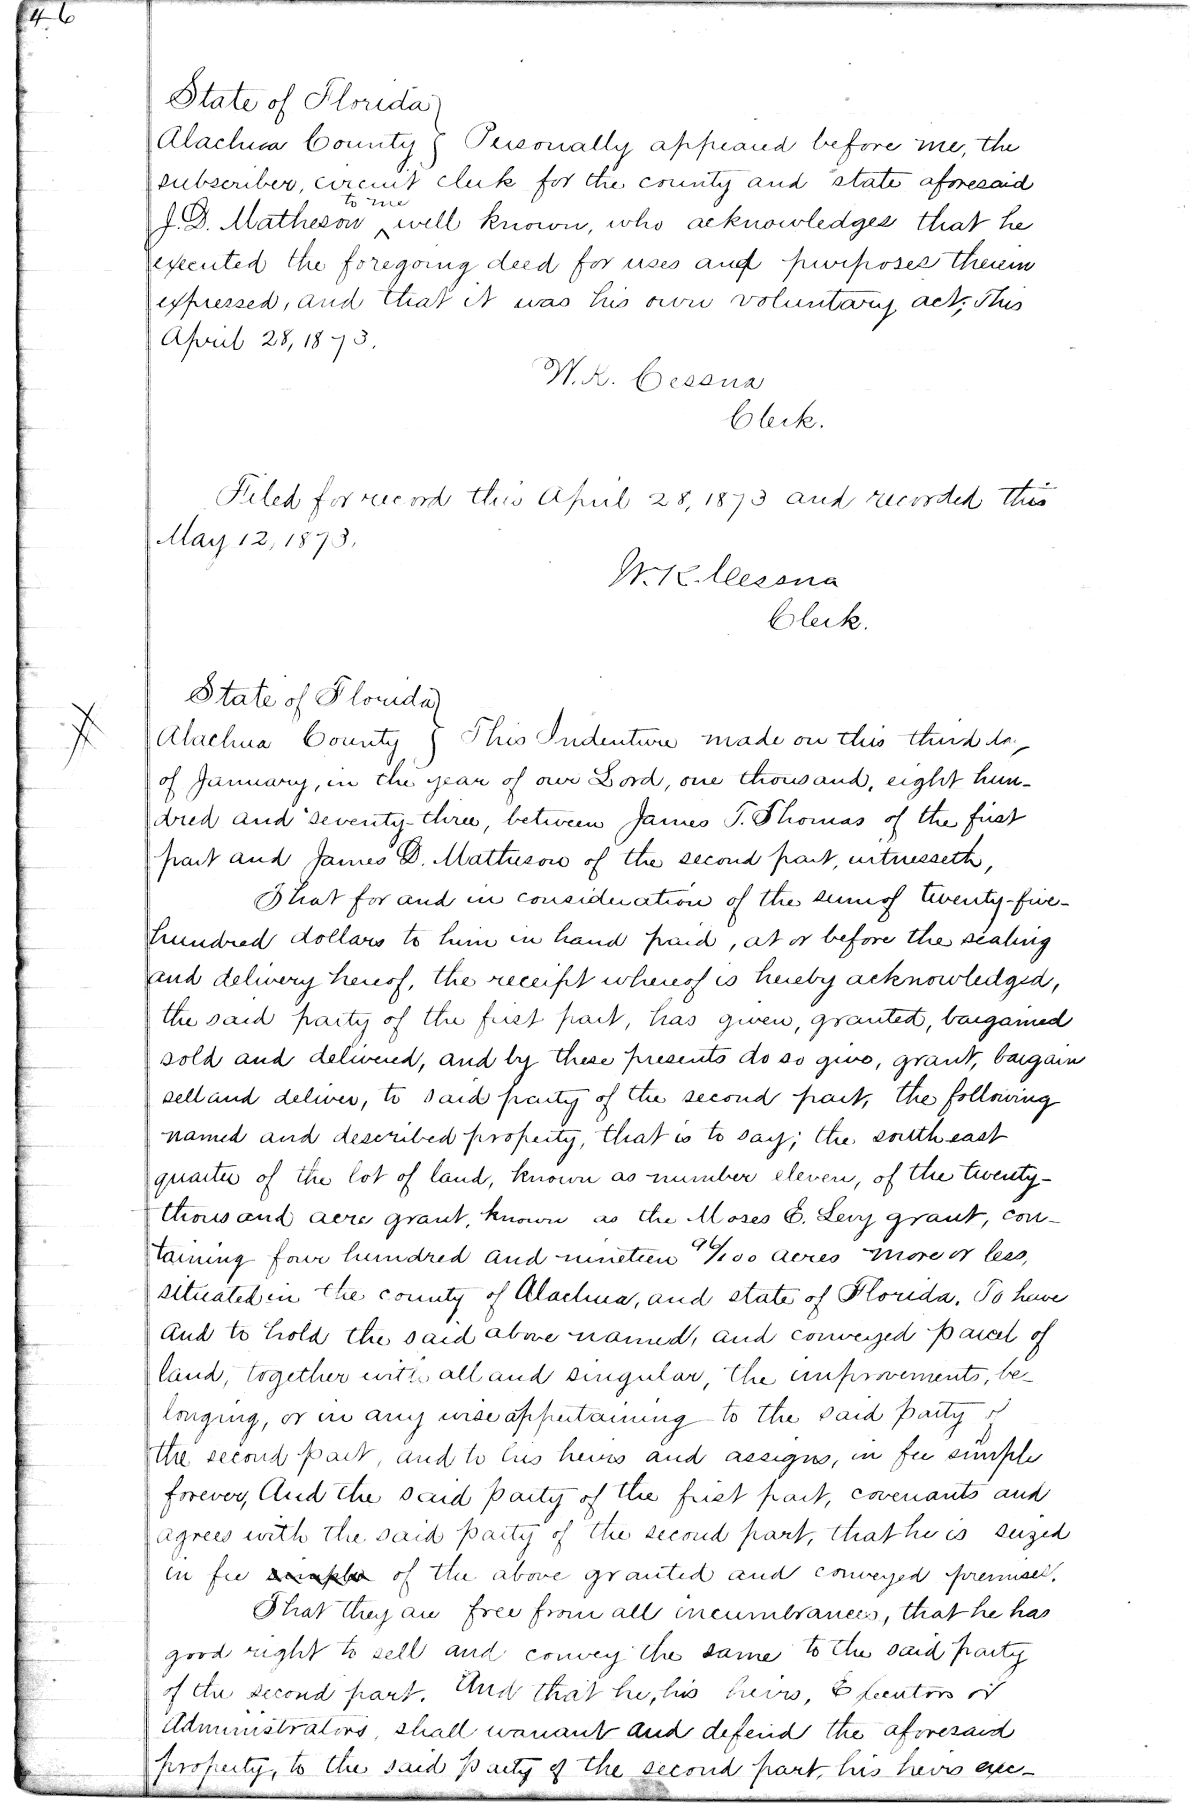 46
State of Florida }
Alachua County } Personally appeared before me, the
subscriber, circuit clerk for the county and state aforesaid
to me
J. D. Matheson ^ well known, who acknowledges that he
executed the foregoing deed for uses and purposes therein
expressed, and that it was his own voluntary act, This
April 28, 1873.
W. K. Cessna
Clerk.
Filed for record this April 28, 1873 and recorded this
May 12, 1873.
W. K. Cessna
Clerk.
State of Florida }
Alachua County } This Indenture made on this third day
of January, in the year of our Lord, one thousand, eight hun-
dred and seventy-three, between James T. Thomas of the first
part and James D. Matheson of the second part, witnesseth,
That for and in consideration of the sum of twenty-five-
hundred dollars to him in hand paid, at or before the sealing
and delivery hereof, the receipt whereof is hereby acknowledged,
the said party of the first part, has given, granted, bargained
sold and delivered, and by these presents do so give, grant, bargain
sell and deliver, to said party of the second part, the following
named and described property, that is to say; the south east
quarter of the lot of land, known as number eleven, of the twenty-
thousand acre grant, known as the Moses E. Levy grant, con-
taining four hundred and nineteen 96/100 acres more or less,
situated in the county of Alachua, and state of Florida. To have
and to hold the said above named, and conveyed parcel of
land, together with all and singular, the improvements, be-
longing, or in any wise appertaining to the said party of
the second part, and to his heirs and assigns, in fee simple
forever, And the said party of the first part, covenants and
agrees with the said party of the second part, that he is seized
in fee simple of the above granted and conveyed premises.
That they are free from all incumbrances, that he has
good right to sell and convey the same to the said party
of the second part. And that he, his heirs, Executors or
Administrators, shall warrant and defend the aforesaid
property, to the said party of the second part, his heirs exe-